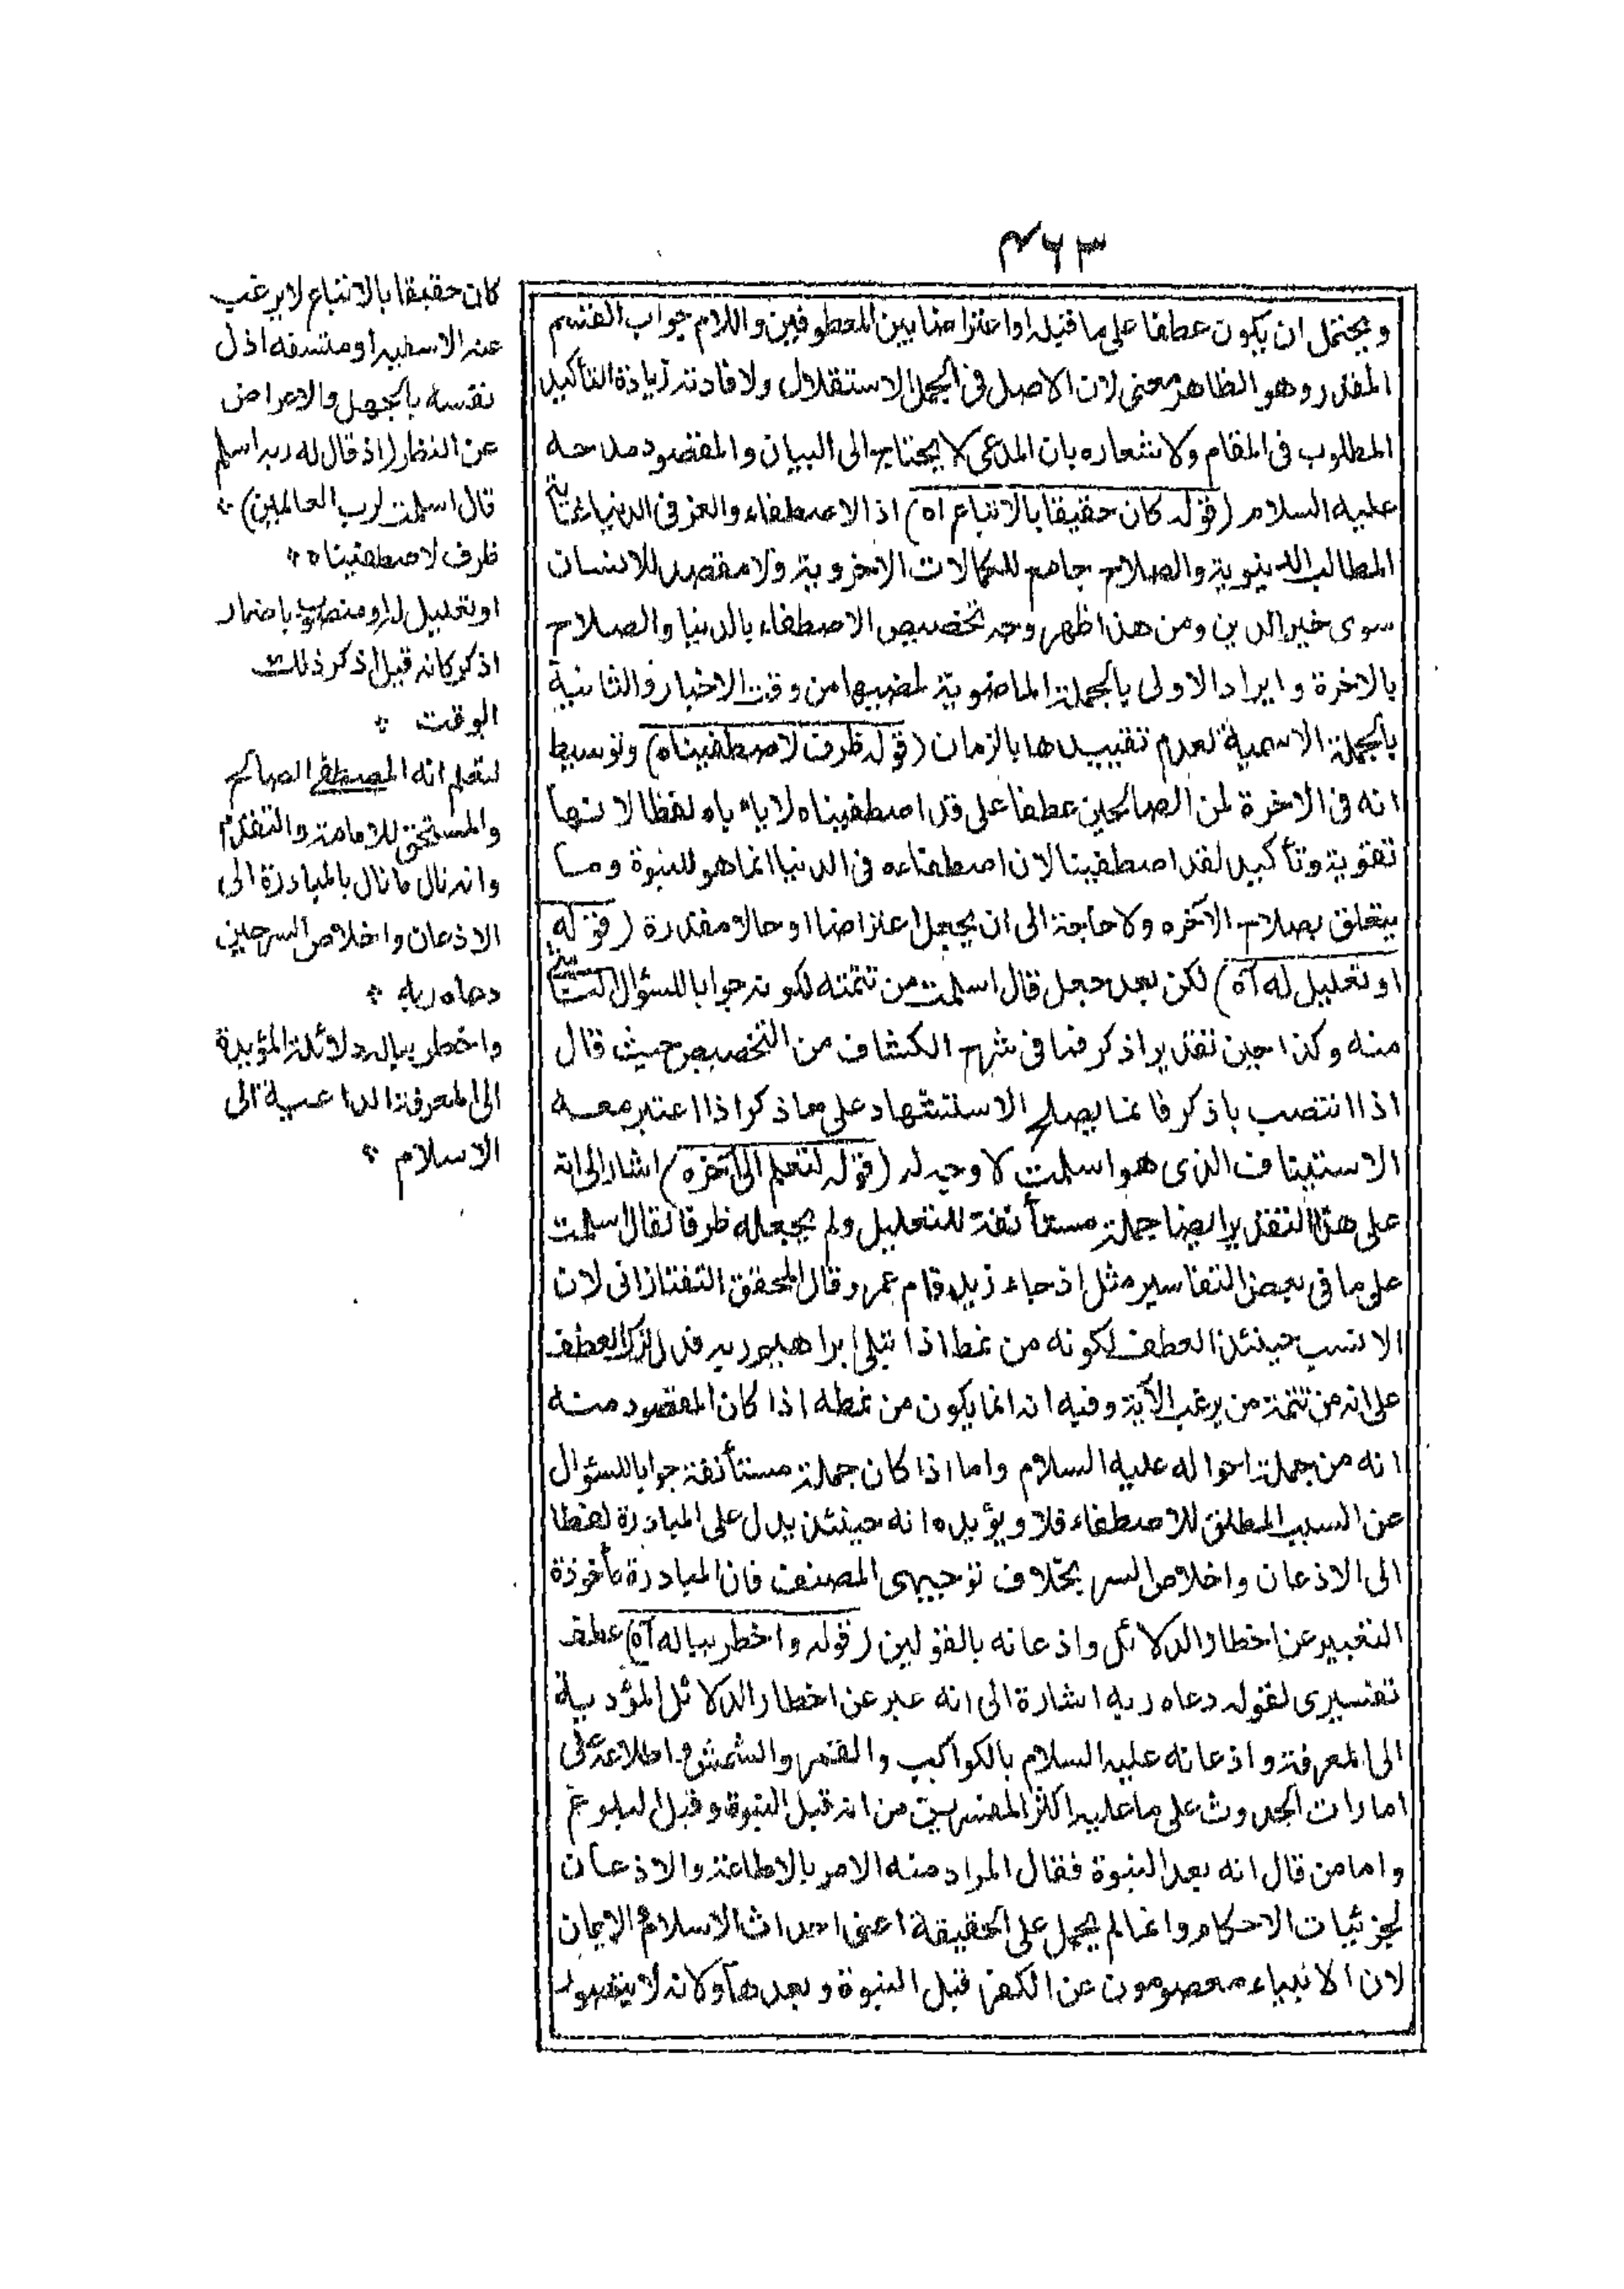 ۴۶۳
ويحتمل ان يكون عطفا على ما قبله او اعتراضا بين المعطوفين واللام جواب القسم
المقدر وهو الظاهر معنى لان الاصل فى الجملة الاستقلال ولافادته زيادة التأكيد
المطلوب فى المقام ولاشعاره بان المدعى لا يحتاج الى البيان والمقصود مدحه
عليه السلام (قوله كان حقيقا بالاتباع اه) اذ الاصطفاء والعز فى الدنيا غاية
المطالب الدنيوية والصلاح جامع للكمالات الاخروية ولا مقصد للانسان
سوى خير الدارين ومن هذا ظهر وجه تخصيص الاصطفاء بالدنيا والصلاح
بالاخرة وايراد الاولى بالجملة الماضوية لمضيها من وقت الاخبار والثانية
بالجملة الاسمية لعدم تقييدها بالزمان (قوله ظرف لاصطفيناه) وتوسيط
انه فى الاخرة لمن الصالحين عطفا على قد اصطفيناه لا ياباه لفظا لانها
تقوية وتأكيد لقد اصطفينا لان اصطفاءه فى الدنيا انما هو للنبوة وما
يتعلق بصلاح الآخره ولا حاجة الى ان يجعل اعتراضا او حالا مقدرة (قوله
او تعليل له آه) لكن بعد جعل قال اسلمت من تتمته لكونه جوابا للسؤال
منه وكذا حين تقدير اذكر فما فى شرح الكشاف من التخصيص حيث قال
اذا انتصب باذكر فانما يصلح الاستشهاد على ما ذكر اذا اعتبر معه
الاستيناف الذى هو اسلمت لا وجه له (قوله لتعلم الى آخره) اشار الى انه
على هذا التقدير ايضا جملة مستأنفة للتعليل ولم يجعله ظرفا لقال اسلمت
على ما فى بعض التفاسير مثل اذ جاء زيد قام عمرو قال المحقق التفتازانى لان
الانسب حينئذ العطف لكونه من نمط اذ ابتلى ابراهيم ربه فدل ترك العطف
على انه من تتمة من يرغب الآية وفيه انه انما يكون من نمطه اذا كان المقصود منه
انه من جملة احواله عليه السلام واما اذا كان جملة مستأنفة جوابا للسؤال
عن السبب المطلق للاصطفاء فلا ويؤيده انه حينئذ يدل على المبادرة لفظا
الى الاذعان واخلاص السر بخلاف توجيهى المصنف فان المبادرة مأخوذة
التعبير عن اخطار الدلائل واذعانه بالقولين (قوله واخطر بباله آه) عطف
تفسيرى لقوله دعاه ربه اشارة الى انه عبر عن اخطار الدلائل المؤدية
الى المعرفة واذعانه عليه السلام بالكواكب والقمر والشمس واطلاعه على
امارات الحدوث على ما عليه اكثر المفسرين من انه قبل النبوة وقبل البلوغ
واما من قال انه بعد النبوة فقال المراد منه الامر بالاطاعة والاذعان
لجزئيات الاحكام وانما لم يحمل على الحقيقة اعنى احداث الاسلام والايمان
لان الانبياء معصومون عن الكفر قبل النبوة وبعدها ولانه لا يتصور
كان حقيقا بالاتباع لا يرغب
عنه الا سفيه او متسفه اذل
نفسه بالجهل والاعراض
عن النظر (اذ قال له ربه اسلم
قال اسلمت لرب العالمين) *
ظرف لاصطفيناه *
او تعليل له او منصوب باضمار
اذكر كانه قيل اذكر ذلك
الوقت *
لتعلم انه المصطفى الصالح
والمستحق للامامة والتقدم
وانه نال ما نال بالمبادرة الى
الاذعان واخلاص السر حين
دعاه ربه *
واخطر بباله دلائلة المؤيدة
الى المعرفة الداعية الى
الاسلام *